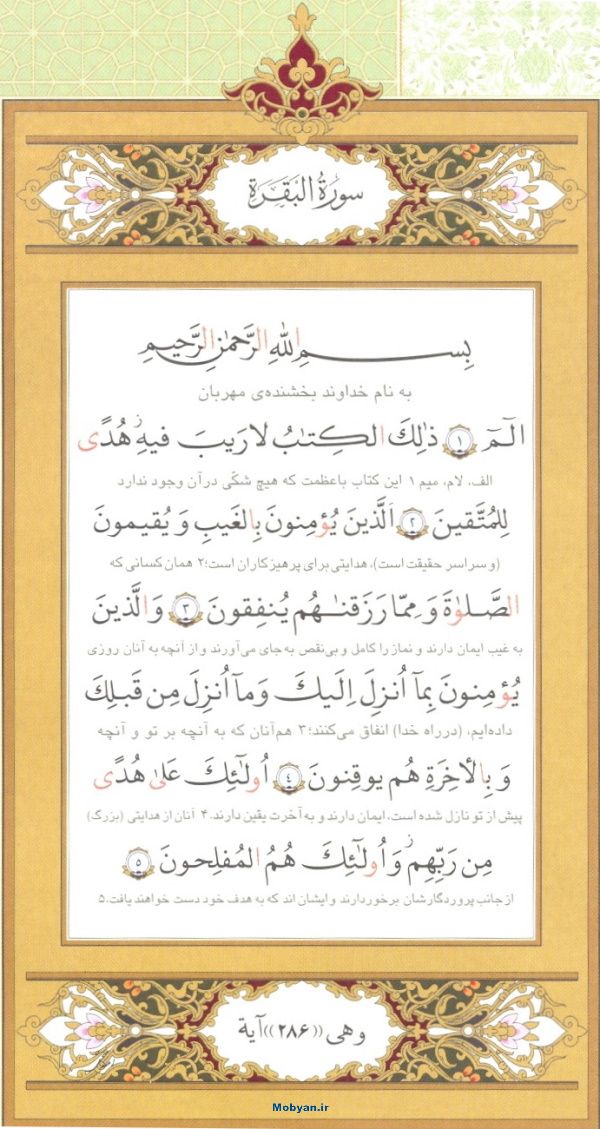 سورة البقرة
بِسمِ اللّٰهِ الرَّحمٰنِ الرَّحيمِ
به نام خداوند بخشنده‌ی مهربان
الٓمٓ ١ ذٰلِكَ الكِتٰبُ لا رَيبَ فيهِ هُدًى
الف، لام، میم ۱ این کتاب باعظمت که هیچ شکّی درآن وجود ندارد
لِلمُتَّقينَ ٢ اَلَّذينَ يُؤمِنونَ بِالغَيبِ وَ يُقيمونَ
(و سراسر حقیقت است)، هدایتی برای پرهیزکاران است؛۲ همان کسانی که
الصَّلوٰةَ وَ مِمّا رَزَقنٰهُم يُنفِقونَ ٣ وَ الَّذينَ
به غیب ایمان دارند و نماز را کامل و بی‌نقص به جای می‌آورند و از آنچه به آنان روزی
يُؤمِنونَ بِمآ اُنزِلَ اِلَيكَ وَ مآ اُنزِلَ مِن قَبلِكَ
داده‌ایم، (درراه خدا) انفاق می‌کنند؛۳ هم‌آنان که به آنچه بر تو و آنچه
وَ بِالأخِرَةِ هُم يوقِنونَ ٤ اُولٰٓئِكَ عَلىٰ هُدًى
پیش از تو نازل شده است، ایمان دارند و به آخرت یقین دارند. ۴ آنان از هدایتی (بزرگ)
مِن رَبِّهِم وَ اُولٰٓئِكَ هُمُ المُفلِحونَ ٥
از جانب پروردگارشان برخوردارند و ایشان اند که به هدف خود دست خواهند یافت.۵
وهی ((۲۸۶)) آیة
Mobyan.ir